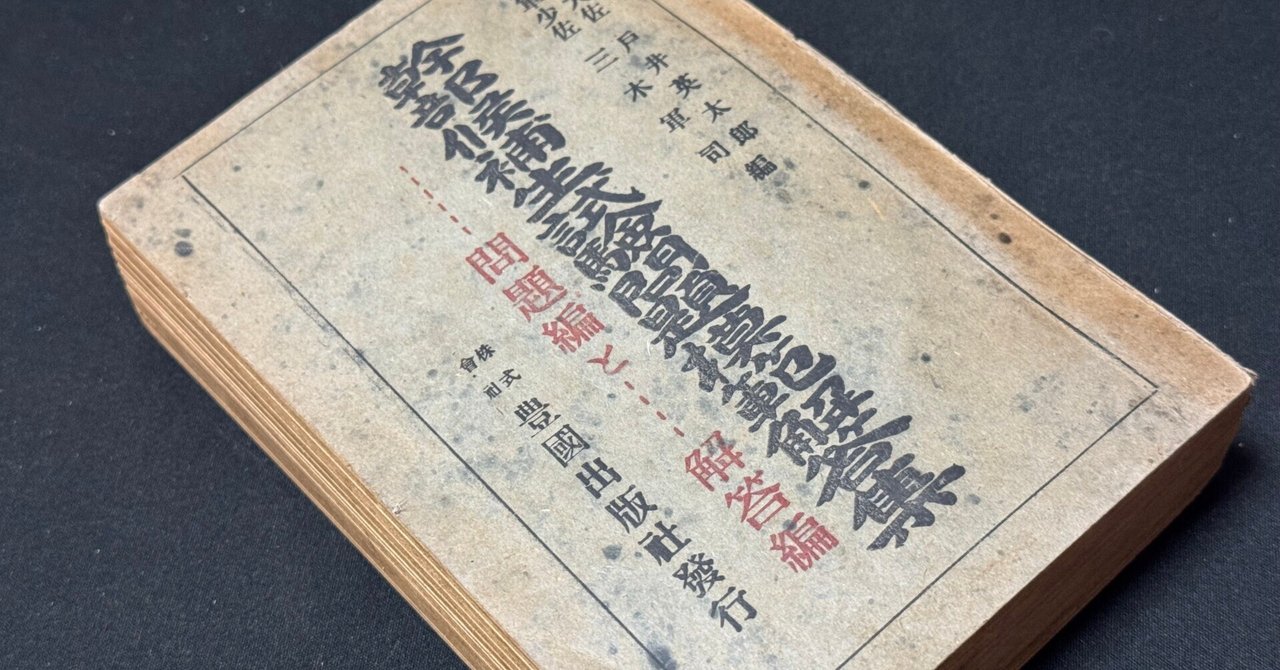 大佐 戸井英太郎
少佐 三木軍司 編
幹部候補生試験問題模範解答集
問題編と解答編
株式會社 豊國出版社發行